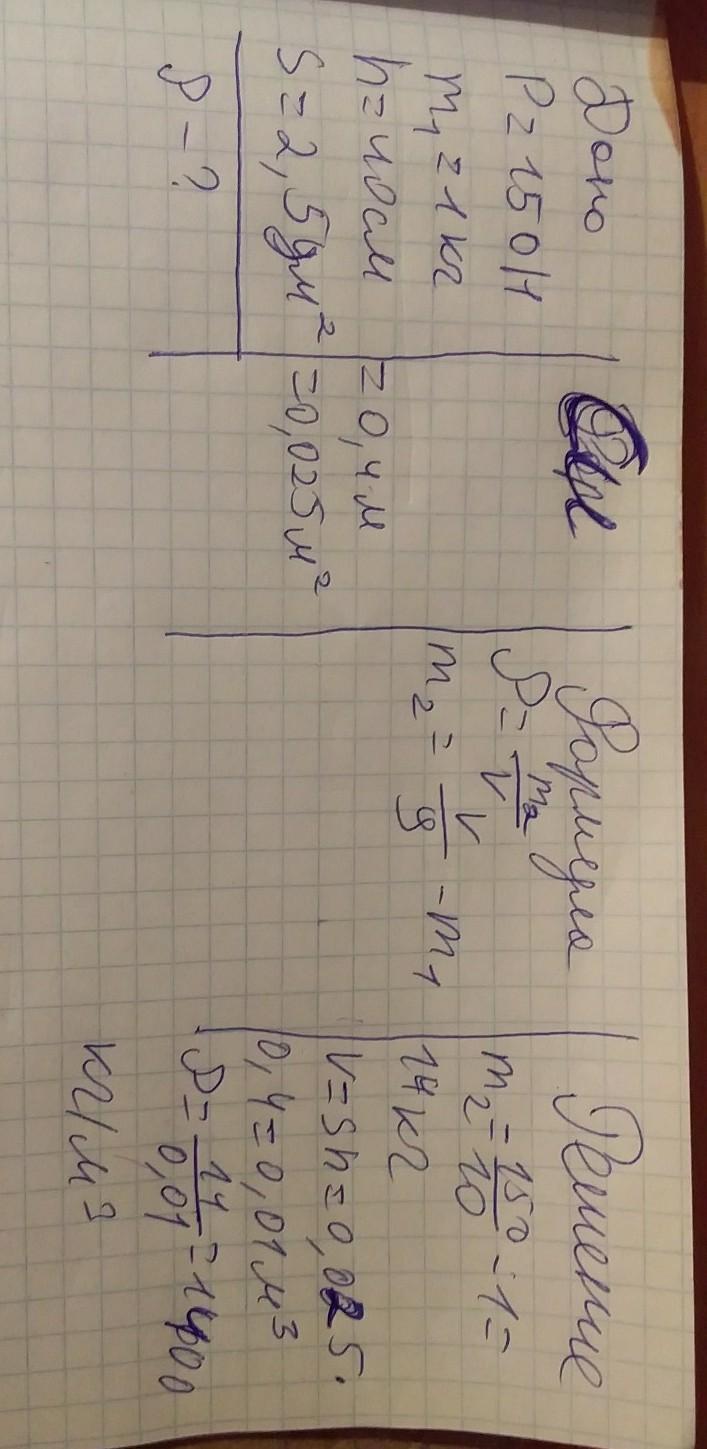 Дано
P = 150 Н
m₁ = 1 кг
h = 40 см
S = 2,5 дм²
ρ - ?
= 0,4 м
= 0,025 м²
Формула
ρ = m₂/V
m₂ = V/g - m₁
Решение
m₂ = 150/10 - 1 =
14 кг
V = Sh = 0,025 ·
0,4 = 0,01 м³
ρ = 14/0,01 = 1400
кг/м³